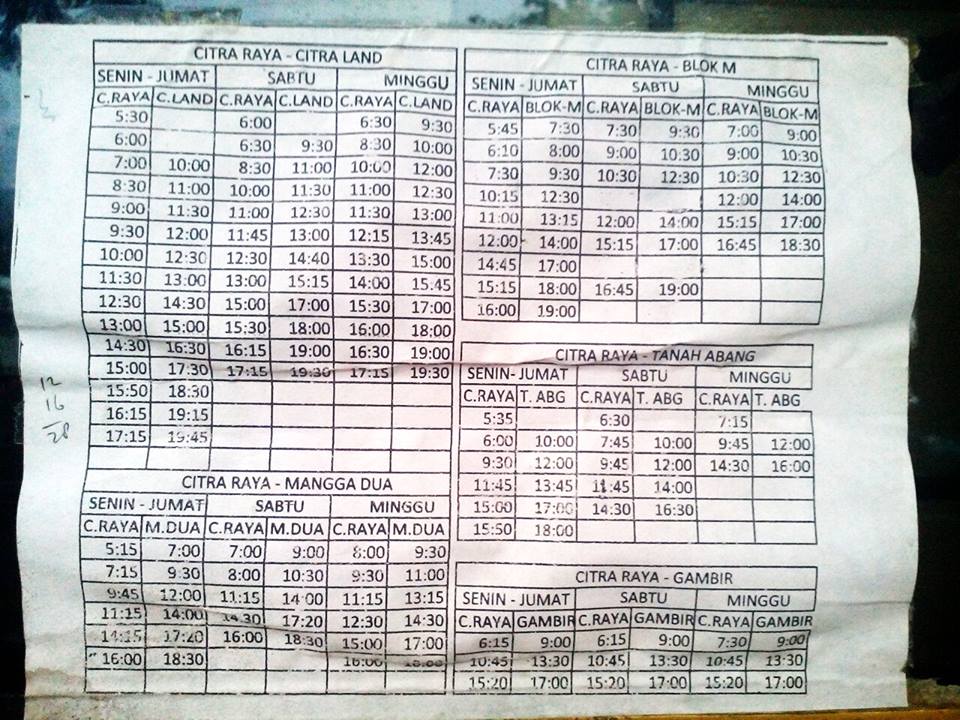 CITRA RAYA - CITRA LAND
SENIN - JUMAT SABTU MINGGU
C.RAYA C.LAND C.RAYA C.LAND C.RAYA C.LAND
5:30 6:00 6:30 9:30
6:00 6:30 9:30 8:30 10:00
7:00 10:00 8:30 11:00 10:00 12:00
8:30 11:00 10:00 11:30 11:00 12:30
9:00 11:30 11:00 12:30 11:30 13:00
9:30 12:00 11:45 13:00 12:15 13:45
10:00 12:30 12:30 14:40 13:30 15:00
11:30 13:00 13:00 15:15 14:00 15.45
12:30 14:30 15:00 17:00 15:30 17:00
13:00 15:00 15:30 18:00 16:00 18:00
14:30 16:30 16:15 19:00 16:30 19:00
15:00 17:30 17:15 19:30 17:15 19:30
15:50 18:30
16:15 19:15
17:15 19:45
CITRA RAYA - MANGGA DUA
SENIN - JUMAT SABTU MINGGU
C.RAYA M.DUA C.RAYA M.DUA C.RAYA M.DUA
5:15 7:00 7:00 9:00 8:00 9:30
7:15 9:30 8:00 10:30 9:30 11:00
9:45 12:00 11:15 14:00 11:15 13:15
11:15 14:00 14:30 17:20 12:30 14:30
14:15 17:20 16:00 18:30 15:00 17:00
16:00 18:30 16:00
CITRA RAYA - BLOK M
SENIN - JUMAT SABTU MINGGU
C.RAYA BLOK-M C.RAYA BLOK-M C.RAYA BLOK-M
5:45 7:30 7:30 9:30 7:00 9:00
6:10 8:00 9:00 10:30 9:00 10:30
7:30 9:30 10:30 12:30 10:30 12:30
10:15 12:30 12:00 14:00
11:00 13:15 12:00 14:00 15:15 17:00
12:00 14:00 15:15 17:00 16:45 18:30
14:45 17:00
15:15 18:00 16:45 19:00
16:00 19:00
CITRA RAYA - TANAH ABANG
SENIN- JUMAT SABTU MINGGU
C.RAYA T. ABG C.RAYA T. ABG C.RAYA T. ABG
5:35 6:30 7:15
6:00 10:00 7:45 10:00 9:45 12:00
9:30 12:00 9:45 12:00 14:30 16:00
11:45 13:45 11:45 14:00
15:00 17:00 14:30 16:30
15:50 18:00
CITRA RAYA - GAMBIR
SENIN - JUMAT SABTU MINGGU
C.RAYA GAMBIR C.RAYA GAMBIR C.RAYA GAMBIR
6:15 9:00 6:15 9:00 7:30 9:00
10:45 13:30 10:45 13:30 10:45 13:30
15:20 17:00 15:20 17:00 15:20 17:00
12
16
28